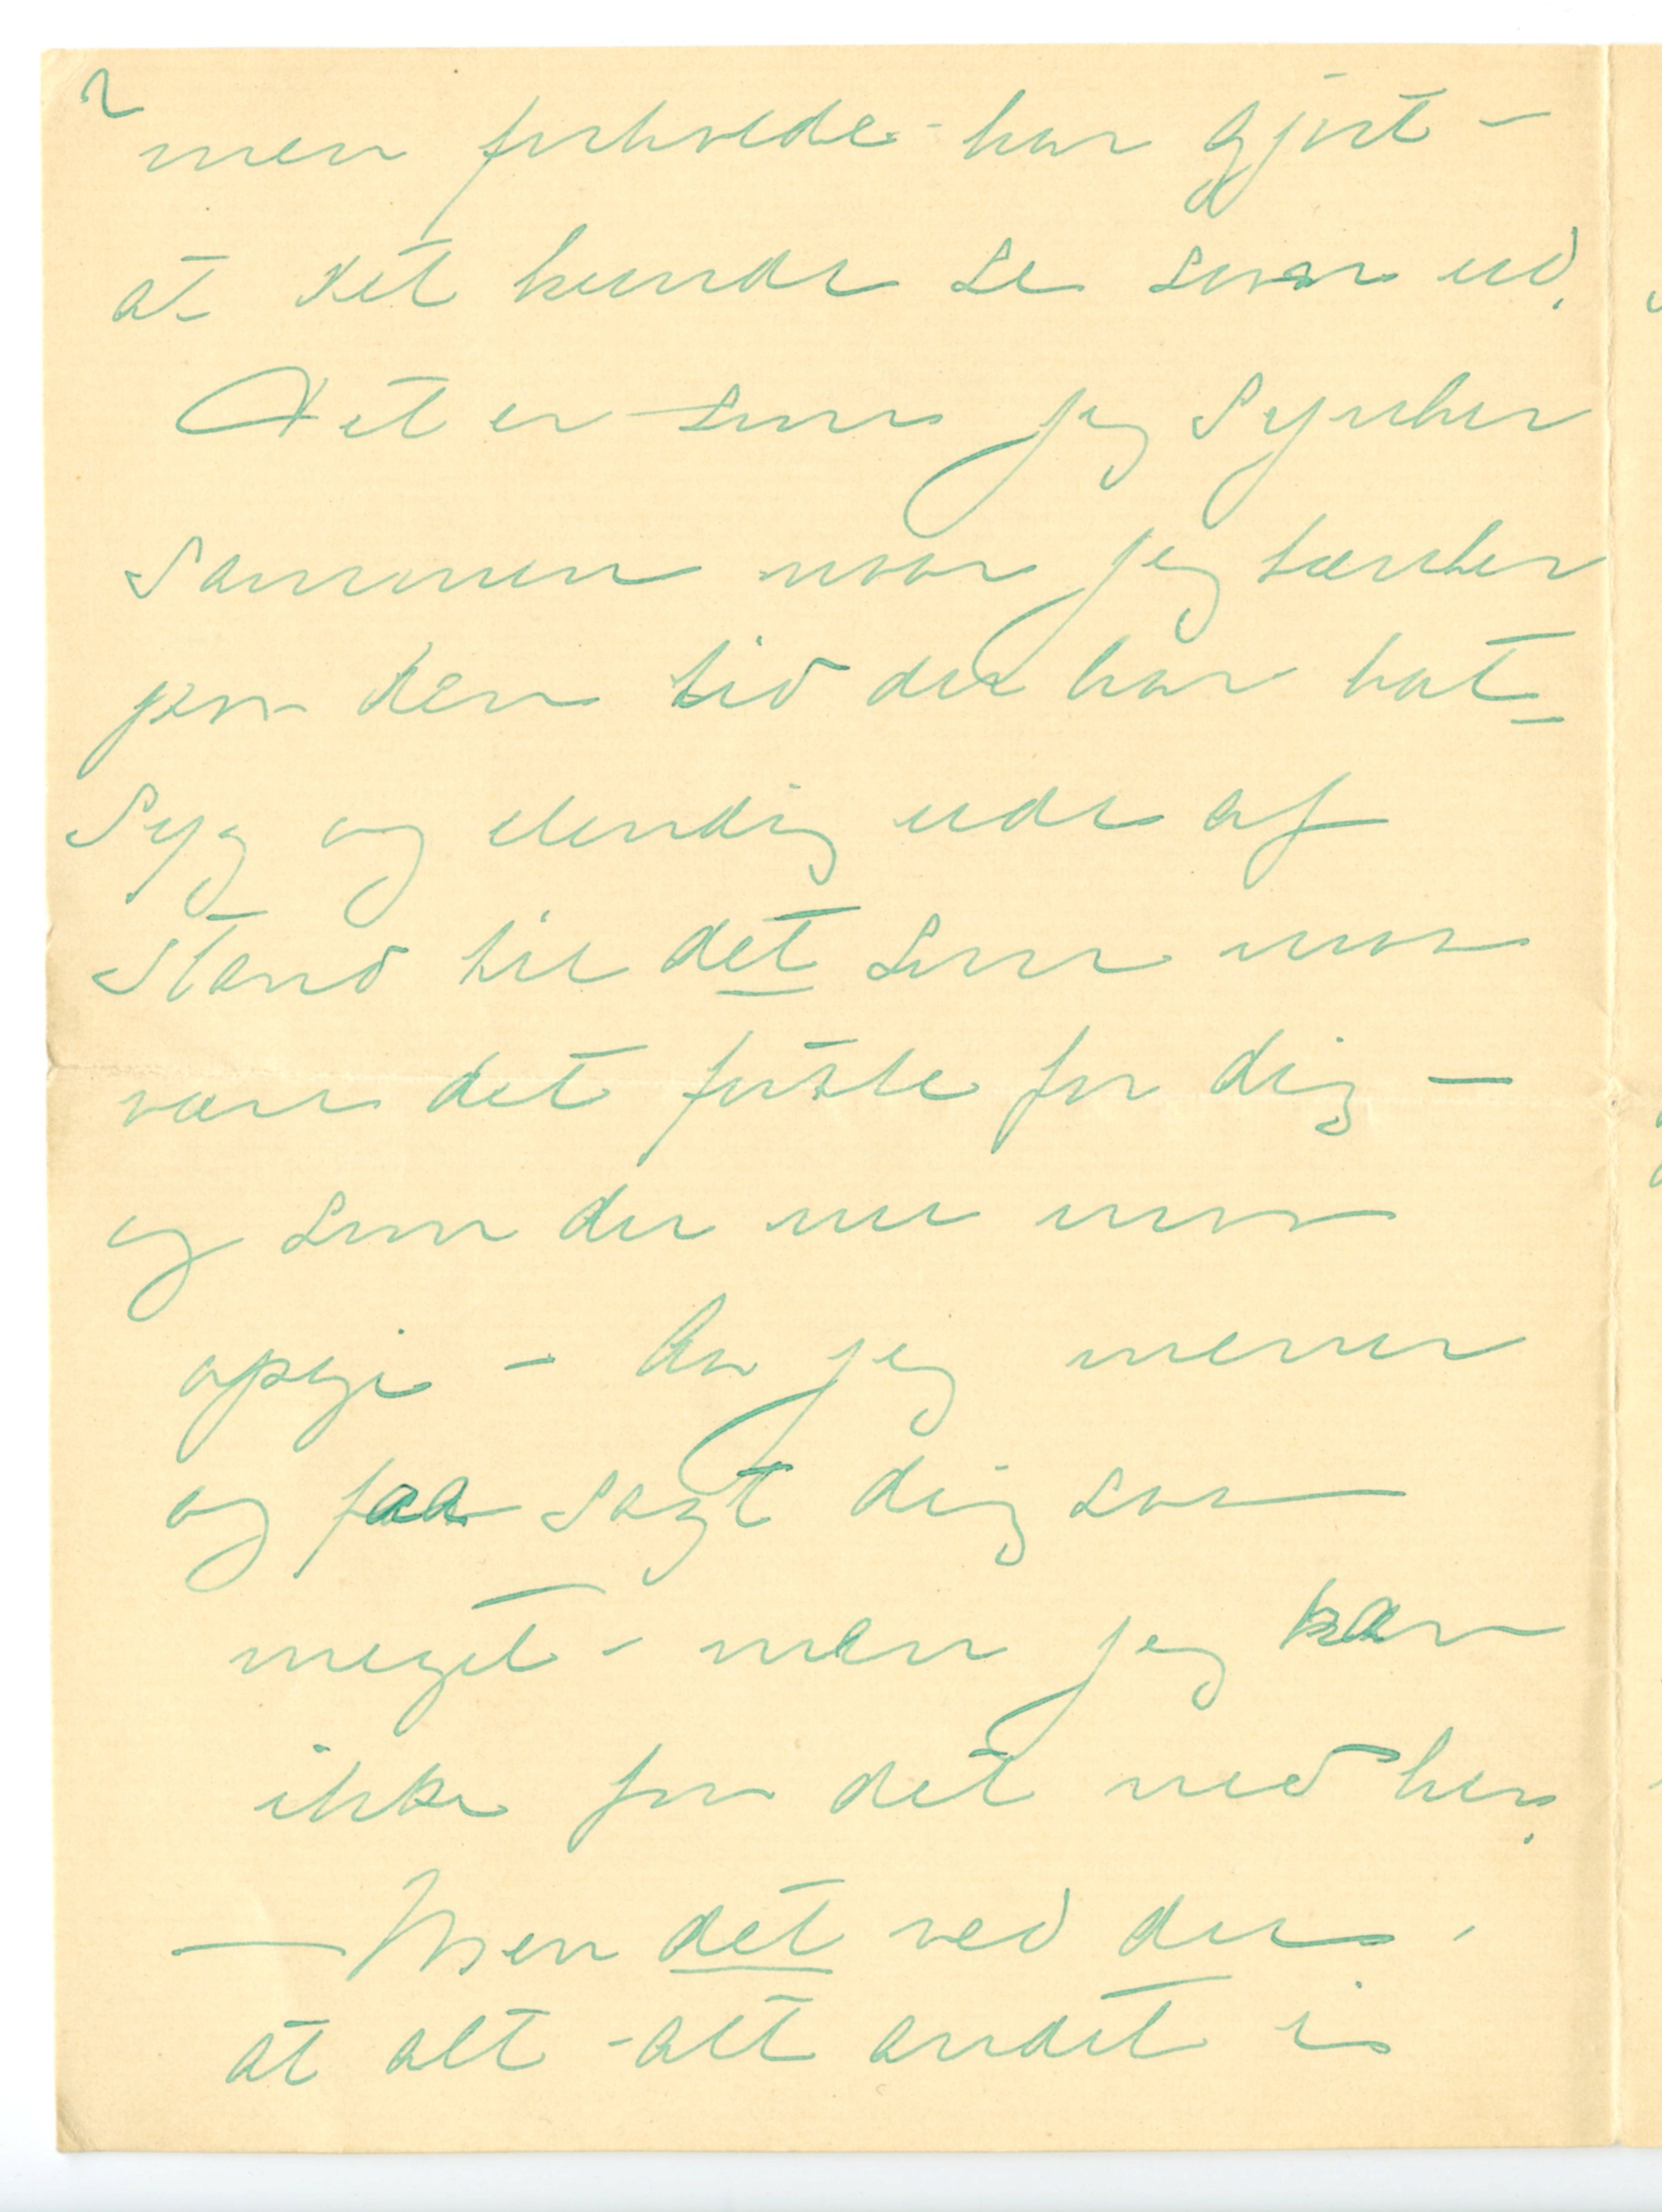 2
men forholde har gjort –
at det kunde se saan ud.
Det er som jeg synker
sammen naar jeg tænker
paa den tid du har hat –
Syg og elendig ude af
Stand til det som maa
være det første for dig –
og som du nu maa
opgi – Aa jeg mener
og faa sagt dig saa
meget – men jeg kan
ikke faa det ned her.
– Men det ved du,
at alt – alt andet i